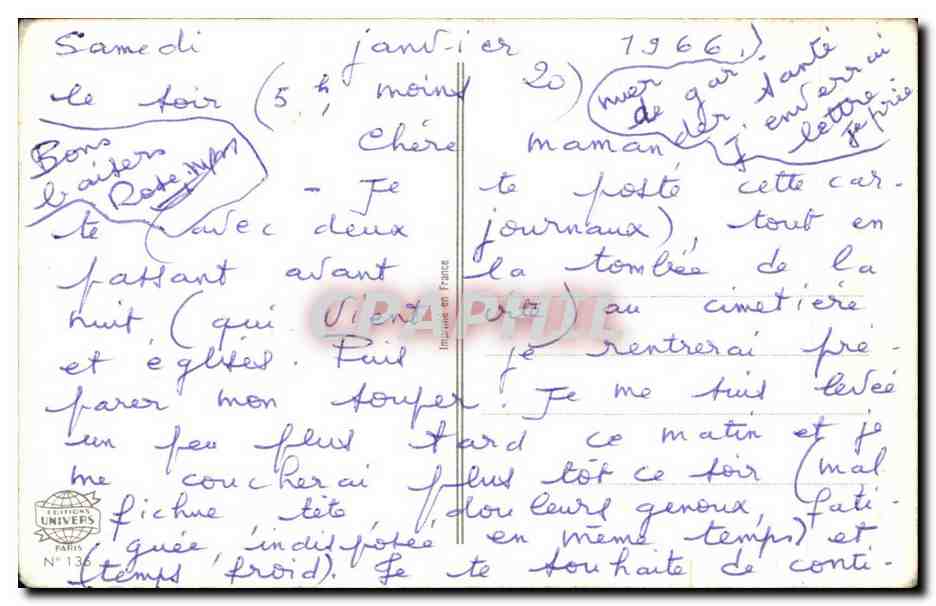 Samedi janvier 1966.
le soir (5h, moins 20)
Chère maman
- Je te poste cette car-
te (avec deux journaux), tout en
passant avant la tombée de la
nuit (qui vient vite) au cimetière
et églises. Puis je rentrerai pré-
parer mon souper. Je me suis levée
un peu plus tard ce matin et je
me coucherai plus tôt ce soir (mal
fichue tête douleurs genoux, fati-
guée, indisposée en même temps) et
(temps froid). Je te souhaite de conti-
nuer
de gar-
der santé
J'enverrai
lettre
je prie
Bons
baisers
Rose
EDITIONS
UNIVERS
PARIS
N° 136
Imprimé en France
CPAPHIL